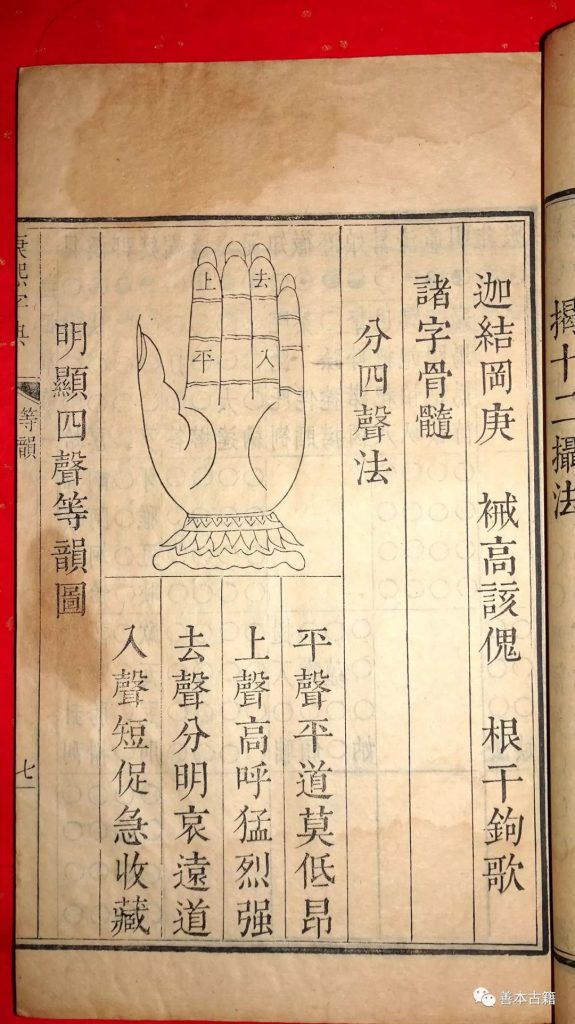 揭十二攝法
迦結岡庚 祴高該傀 根干鉤歌
諸字骨髓
分四聲法
上 去
平 入
平聲平道莫低昂
上聲高呼猛烈强
去聲分明哀遠道
入聲短促急收藏
明顯四聲等韻圖
康熙字典
等韻
七
善本古籍